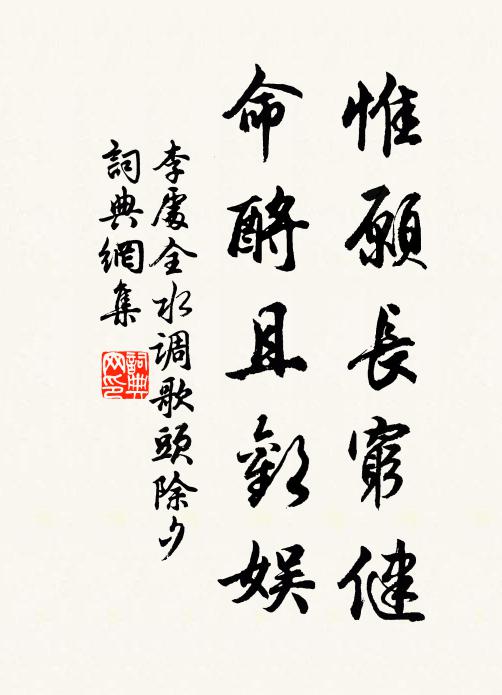 惟願長窮健
命酹且歡娱
李處全水调歌頭除夕
詞典網集
詞典网印